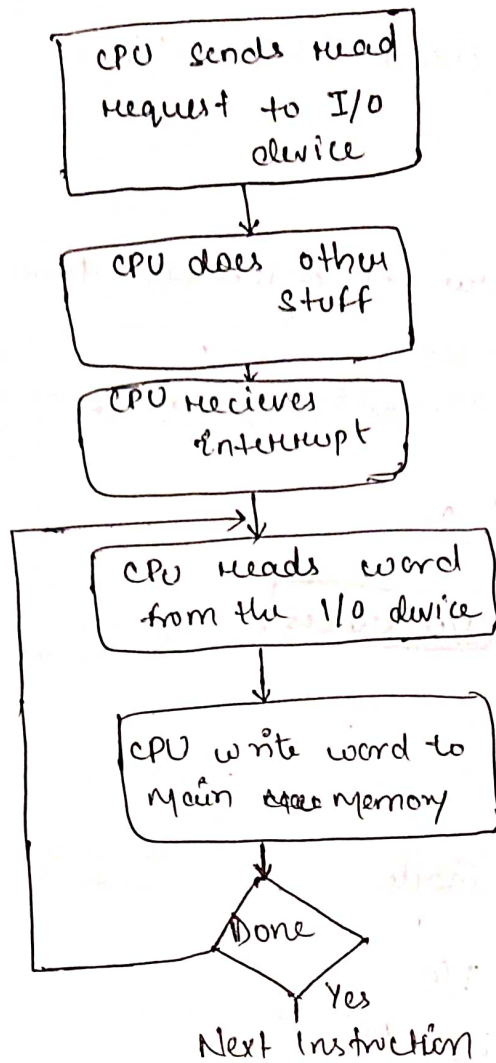 CPU sends read
request to I/O
device
CPU does other
stuff
CPU recieves
interrupt
CPU reads word
from the I/O device
CPU write word to
Main Memory
Done
Yes
Next Instruction